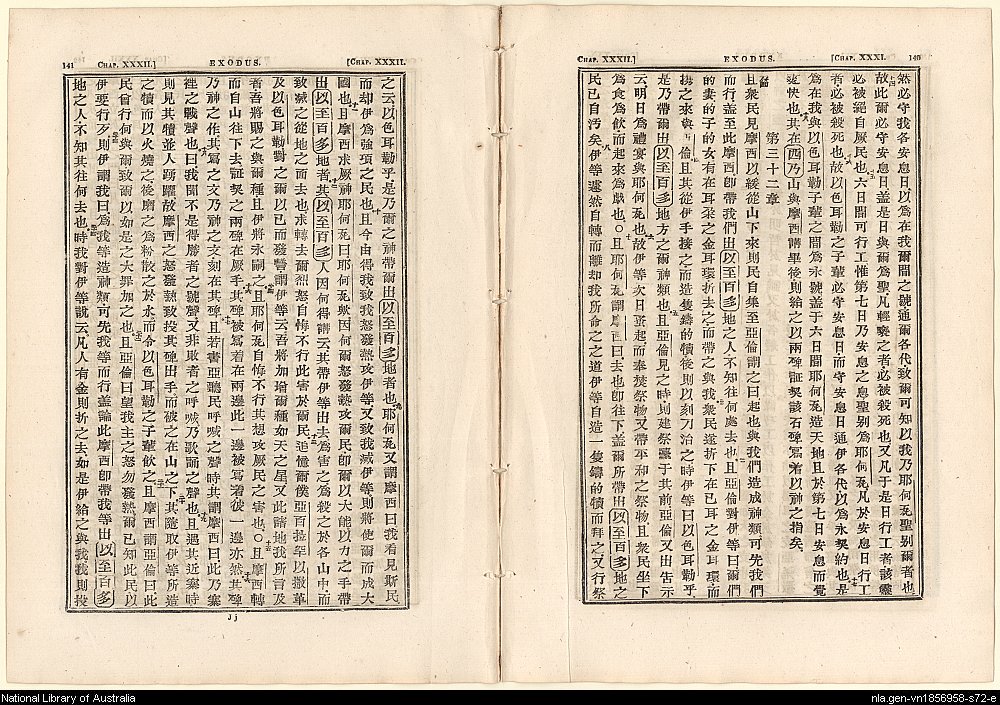 CHAP. XXXII.]
EXODUS.
[CHAP. XXXI.
140
然必守我各安息日以為在我爾間之號通爾各代致爾可知以我乃耶何𠰷聖別爾者也
故此爾必守安息日蓋是日與爾為聖凡輕褻之者必被殺死也又凡于是日行工者該靈
必被絕自厥民也六日間可行工惟第七日乃安息之息聖別為耶何𠰷凡於安息日行工
者必被殺死也故以色耳勒之子輩必守安息日而守安息日通伊各代以為永契約也是
為在我與以色耳勒子輩之間為永號蓋于六日間耶何𠰷造天地且於第七日安息而覺
爽快也其在西乃山與摩西講畢後則給之以兩碑証契該石碑寫着以神之指矣
第三十二章
且眾民見摩西以緩從山下來則民自集至亞倫謂之曰起也與我們造成神類可先我們
而行蓋至此摩西即帶我們出以至百多地之人不知往何處去也且亞倫對伊等曰爾們
的妻的子的女有在耳朵之金耳環折去之而帶之與我眾民遂折下在己耳之金耳環而
帶之來與亞倫且其從伊手接之而造隻鑄的犢後則以刻刀治之時伊等曰以色耳勒乎
是乃帶爾出以至百多地方之爾神類也且亞倫見之時則建祭臺于其前亞倫又出告示
云明日為禮宴與耶何𠰷也故伊等次日蚤起而奉焚祭物又帶平和之祭物且眾民坐下
為食為飲而起來為戲也○且耶何𠰷謂摩西曰去也即往下蓋爾所帶出以至百多地之
民已自汚矣伊等遽然自轉而離却我所命之之道伊等自造一隻鑄的犢而拜之又行祭
141
CHAP. XXXII.]
EXODUS.
[CHAP. XXXII.
之云以色耳勒乎是乃爾之神帶爾出以至百多地者也耶何𠰷又謂摩西曰我看見斯民
而却伊為強項之民也且今由得我致我怒發熱攻伊等又致我滅伊等則將使爾而成大
國也且摩西求厥神耶何𠰷曰耶何𠰷歟因何爾怒發熱攻爾民即爾以大能以力之手帶
出以至百多地者其以至百多人因何得講云其帶伊等出去為害之為殺之於各山中而
致滅之從地之面去也求轉去爾烈怒自悔不行此害於爾民追憶爾僕亞百拉罕以撒革
及以色耳勒對之爾以已而發誓謂伊等云吾將加增爾種如天之星又此諸地我所言及
者吾將賜之與爾種且伊將永嗣之且耶何𠰷自悔不行其想攻厥民之害也○且摩西轉
而自山往下去証契之兩碑在厥手其碑被寫着在兩邊此一邊被寫着彼一邊亦然其碑
乃神之作其寫之文乃神之文刻在其碑且若書亞聽民呼喊之聲時其謂摩西曰此乃寨
裡之戰聲也曰我聞不是得勝者之號聲又非敗者之呼喊乃歌誦之聲也且遇其近寨時
則見其犢並人踴躍故摩西之怒發熱致投其碑出手而破之在山之下其隨取伊等所造
之犢而以火燒之後磨之為粉散之於水而令以色耳勒之子輩飲之且摩西謂亞倫曰此
民曾行何與爾致爾以如是之大罪加之也且亞倫曰望我主之怒勿發熱爾已知此民以
伊要行歹則伊謂我曰為我等造神類可先我等而行蓋論此摩西即帶我等出以至百多
地之人不知其往何去也時我對伊等說云凡人有金則折之去如是伊給之與我我則投
J j
National Library of Australia
nla.gen-vn1856958-s72-e